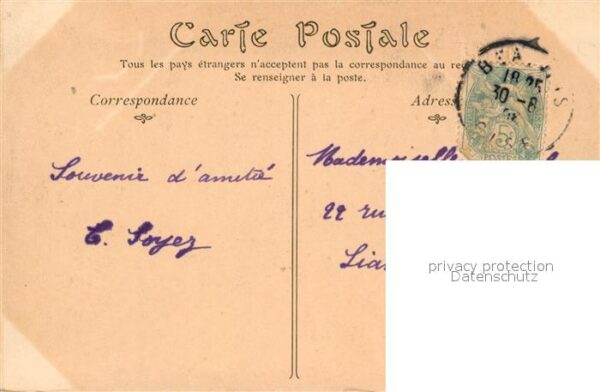 Carte Postale
Tous les pays étrangers n'acceptent pas la correspondance au
Se renseigner à la poste.
Correspondance
Souvenir d'amitié
E. Soyez
18 25
30 - 8
5
POSTE
Mademoiselle
22
privacy protection
Datenschutz